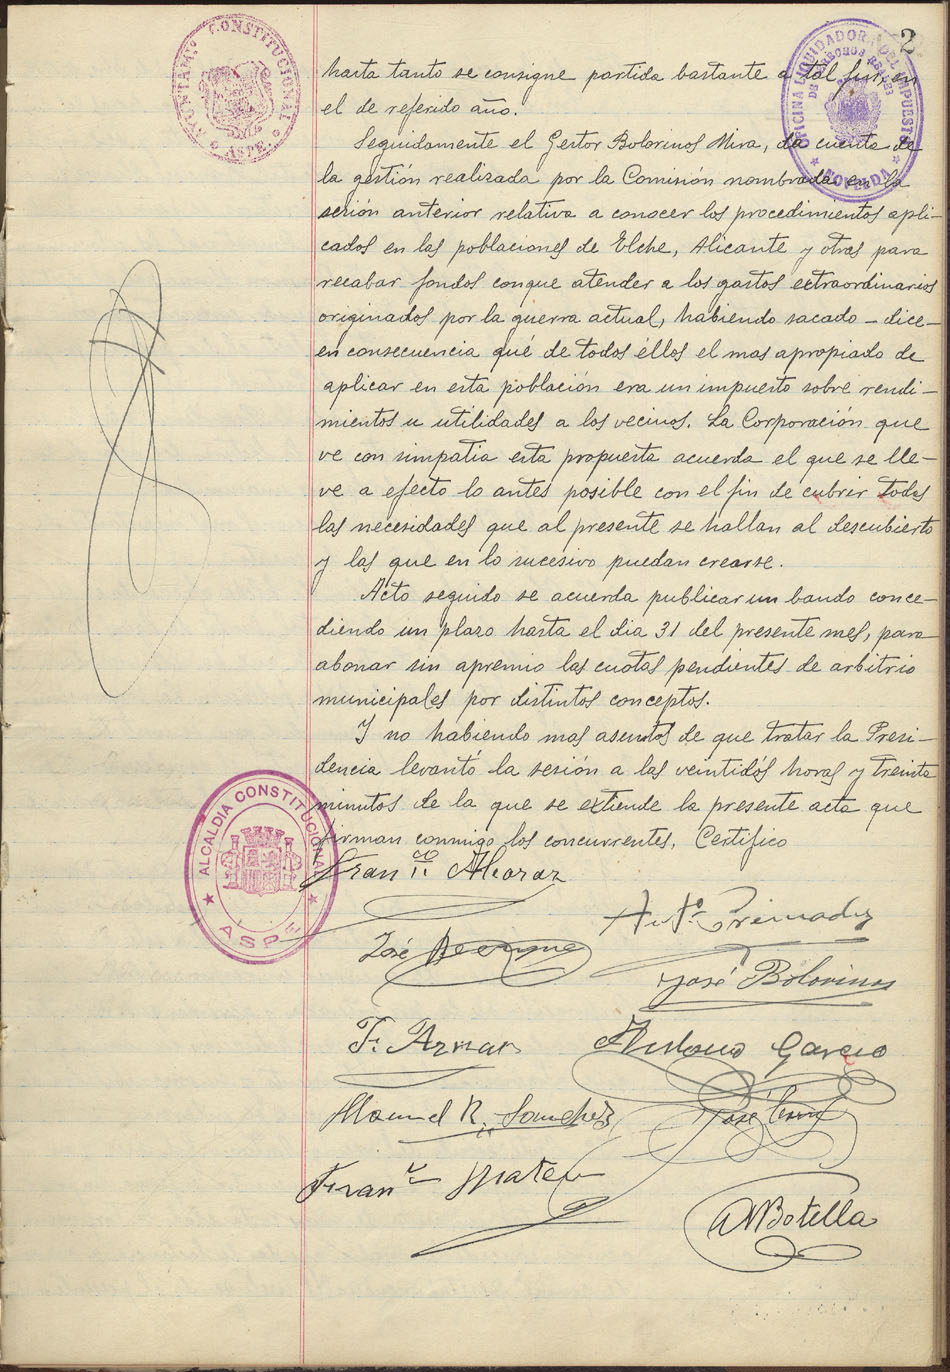 2
AYUNTAMTº CONSTITUCIONAL
ASPE
OFICINA LIQUIDADORA DEL IMPUESTO
DE DERECHOS REALES
NOVELDA
hasta tanto se consigne partida bastante a tal fin, en
el de referido año.
Seguidamente el Gestor Bolorinos Mira, da cuenta de
la gestión realizada por la Comisión nombrada en la
sesión anterior relativa a conocer los procedimientos apli-
cados en las poblaciones de Elche, Alicante y otras para
recabar fondos conque atender a los gastos extraordinarios
originados por la guerra actual, habiendo sacado - dice -
en consecuencia qué de todos éllos el mas apropiado de
aplicar en esta población era un impuesto sobre rendi-
mientos u utilidades a los vecinos. La Corporación que
ve con simpatia esta propuesta acuerda el que se lle-
ve a efecto lo antes posible con el fin de cubrir todas
las necesidades que al presente se hallan al descubierto
y las que en lo sucesivo puedan crearse.
Acto seguido se acuerda publicar un bando conce-
diendo un plazo hasta el dia 31 del presente mes, para
abonar sin apremio las cuotas pendientes de arbitrio
municipales por distintos conceptos.
Y no habiendo mas asuntos de que tratar la Presi-
dencia levantó la sesión a las veintidós horas y treinta
minutos de la que se extiende la presente acta que
firman conmigo los concurrentes. Certifico
ALCALDIA CONSTITUCIONAL
ASPE
Franco Alcaraz
Antº
José
José Bolorinos
F. Aznar
Antonio Garcia
Manuel R. Sanchez
José
Franco Mateu
A Botella